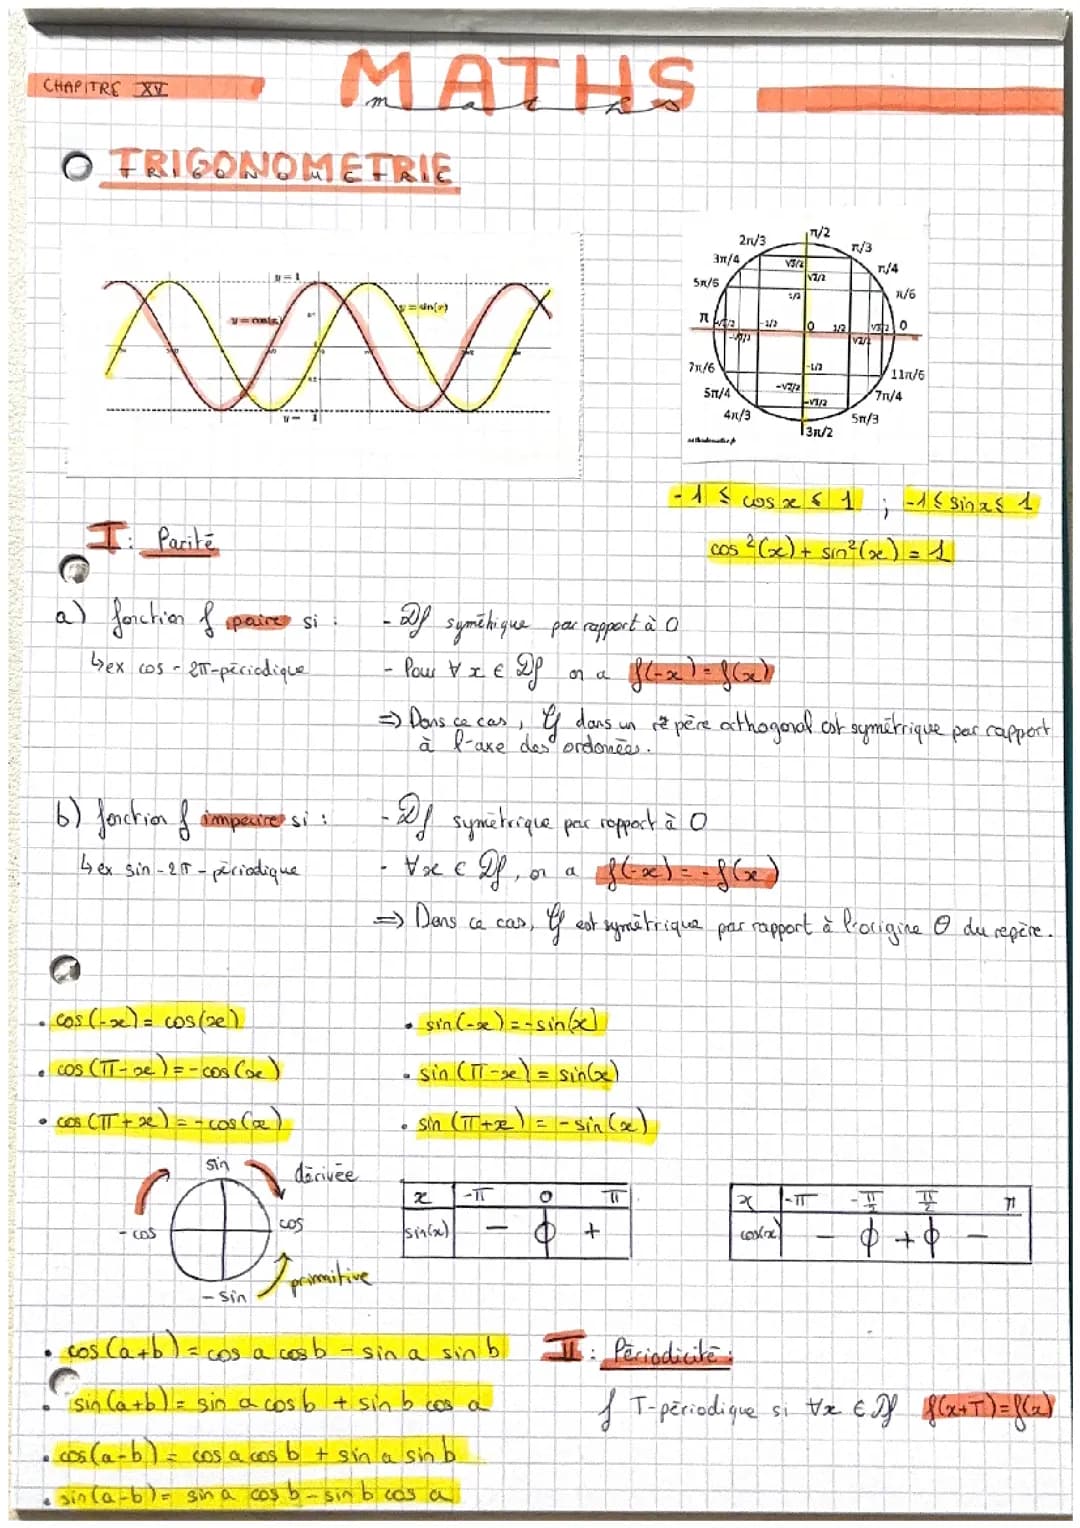 CHAPITRE XV
MATHS
maths
TRIGONOMETRIE
TRIGONOMETRIE
y = 1
y = cos(x)
y = sin(x)
y = - 1
π/2
2π/3
π/3
3π/4
π/4
5π/6
π/6
√3/2
√2/2
1/2
π
-1/2
0
1/2
√3/2
0
√2/2
-1/2
-√2/2
-√3/2
7π/6
11π/6
5π/4
7π/4
4π/3
5π/3
3π/2
-1 ≤ cos x ≤ 1 ; -1 ≤ sin x ≤ 1
cos²(x) + sin²(x) = 1
I : Parité
a) fonction f paire si : - Df symétrique par rapport à O
↳ ex cos - 2π-périodique - Pour ∀ x ∈ Df on a f(-x) = f(x)
⇒ Dans ce cas, Cf dans un repère orthogonal est symétrique par rapport
à l'axe des ordonées.
b) fonction f impaire si : - Df symétrique par rapport à O
↳ ex sin - 2π - périodique - ∀x ∈ Df, on a f(-x) = -f(x)
⇒ Dans ce cas, Cf est symétrique par rapport à l'origine O du repère.
• cos(-x) = cos(x) • sin(-x) = -sin(x)
• cos(π-x) = -cos(x) • sin(π-x) = sin(x)
• cos(π+x) = -cos(x) • sin(π+x) = -sin(x)
sin
dérivée
- cos
cos
- sin
primitive
x -π 0 π
sin(x) - 0 +
x -π -π/2 π/2 π
cos(x) - 0 + 0 -
• cos(a+b) = cos a cos b - sin a sin b
II : Périodicité :
• sin(a+b) = sin a cos b + sin b cos a
f T-périodique si ∀x ∈ Df f(x+T) = f(x)
• cos(a-b) = cos a cos b + sin a sin b
• sin(a-b) = sin a cos b - sin b cos a